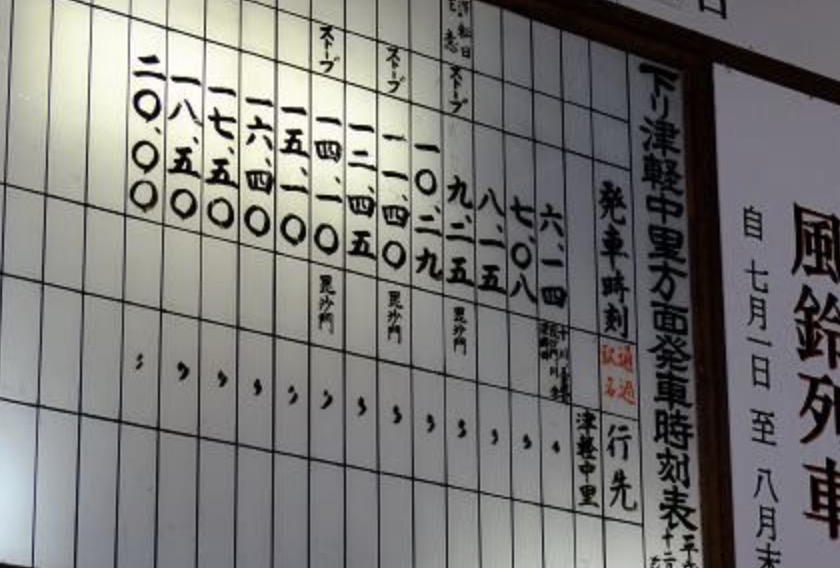 下り津軽中里方面発車時刻表
発車時刻
通過駅名
行先
津軽中里
六、一四
七、〇八
八、一五
ストーブ 九、二五 毘沙門 〃
一〇、二九 〃
ストーブ 一一、四〇 毘沙門 〃
一二、四五 〃
ストーブ 一四、一〇 毘沙門 〃
一五、一〇 〃
一六、四〇 〃
一七、五〇 〃
一八、五〇 〃
二〇、〇〇 〃
風鈴列車
自 七月一日 至 八月末
日